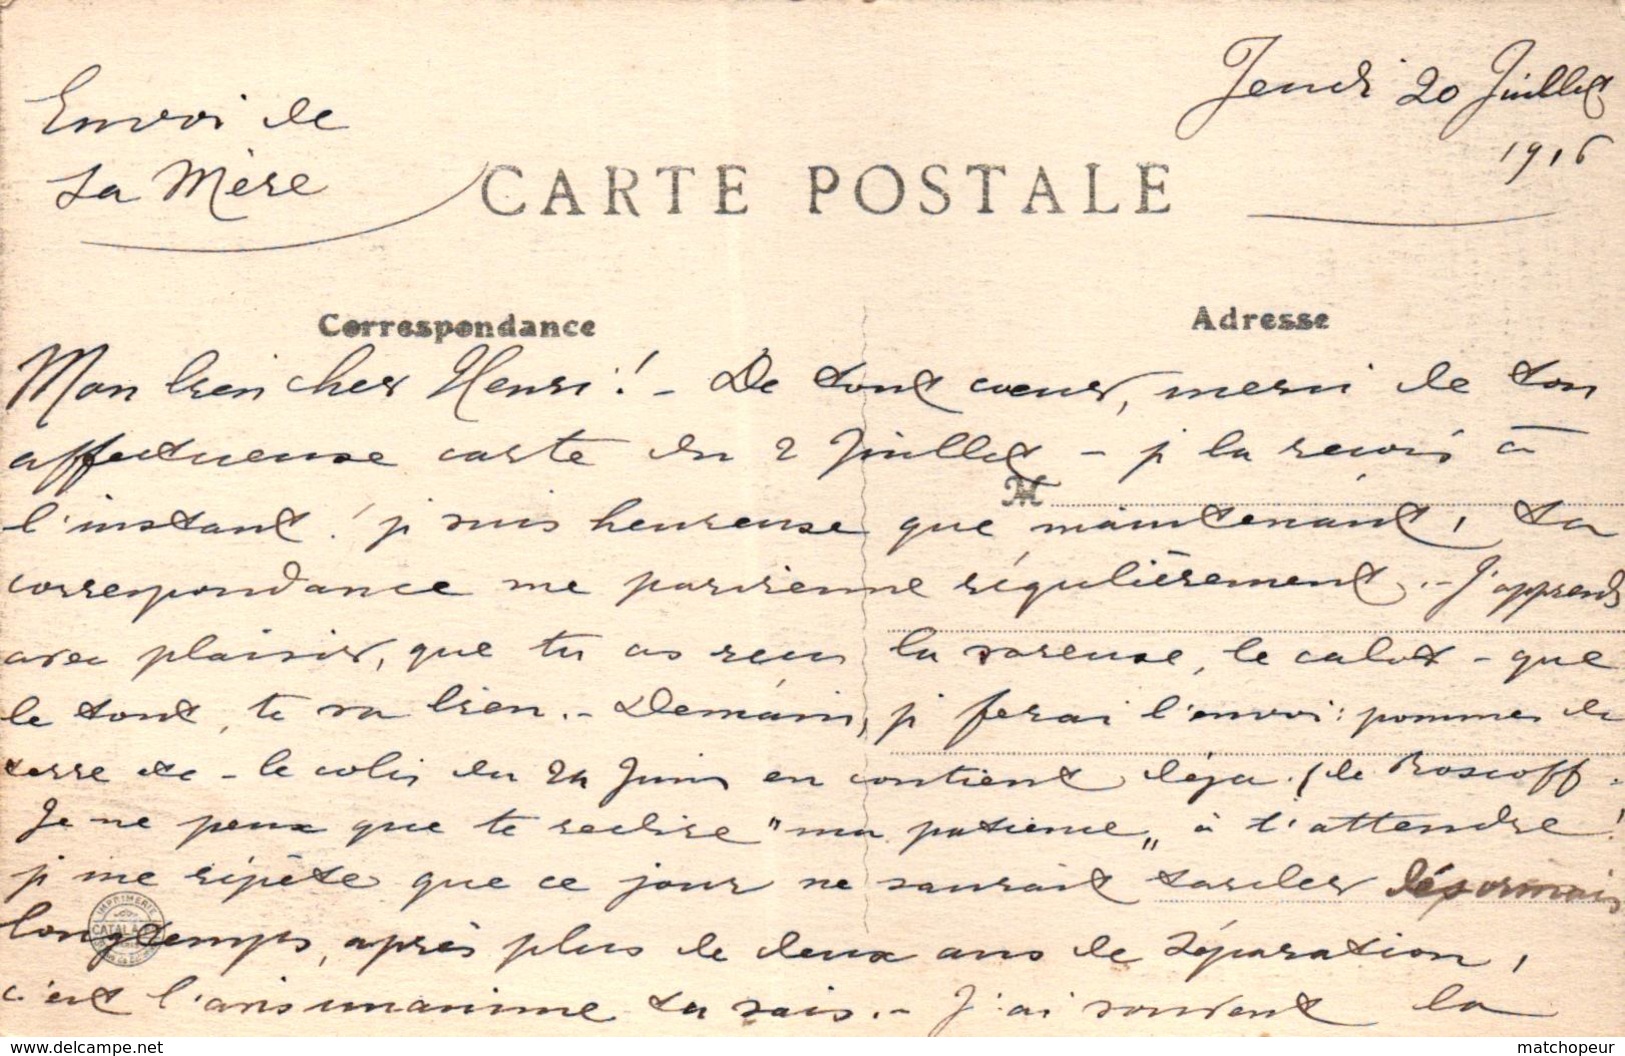 Envoi de
ta Mère
Jeudi 20 Juillet
1916
CARTE POSTALE
Correspondance
Adresse
Mon bien cher Henri ! - De tout cœur, merci de ton
affectueuse carte du 2 Juillet - je la reçois à
M
l'instant ! je suis heureuse que maintenant, ta
correspondance me parvienne régulièrement. - J'apprends
avec plaisir, que tu as reçu la vareuse, le calot - que
le tout, te va bien. - Demain, je ferai l'envoi : pommes de
terre etc - le colis du 24 Juin en contient déja. (de Roscoff.
Je ne peux que te redire "ma patience" à t'attendre !
je me répète que ce jour ne saurait tarder désormais
longtemps, après plus de deux ans de séparation,
c'est l'avis unanime tu sais. - J'ai souvent la
IMPRIMERIE
CATALA
delcampe.net
matchopeur